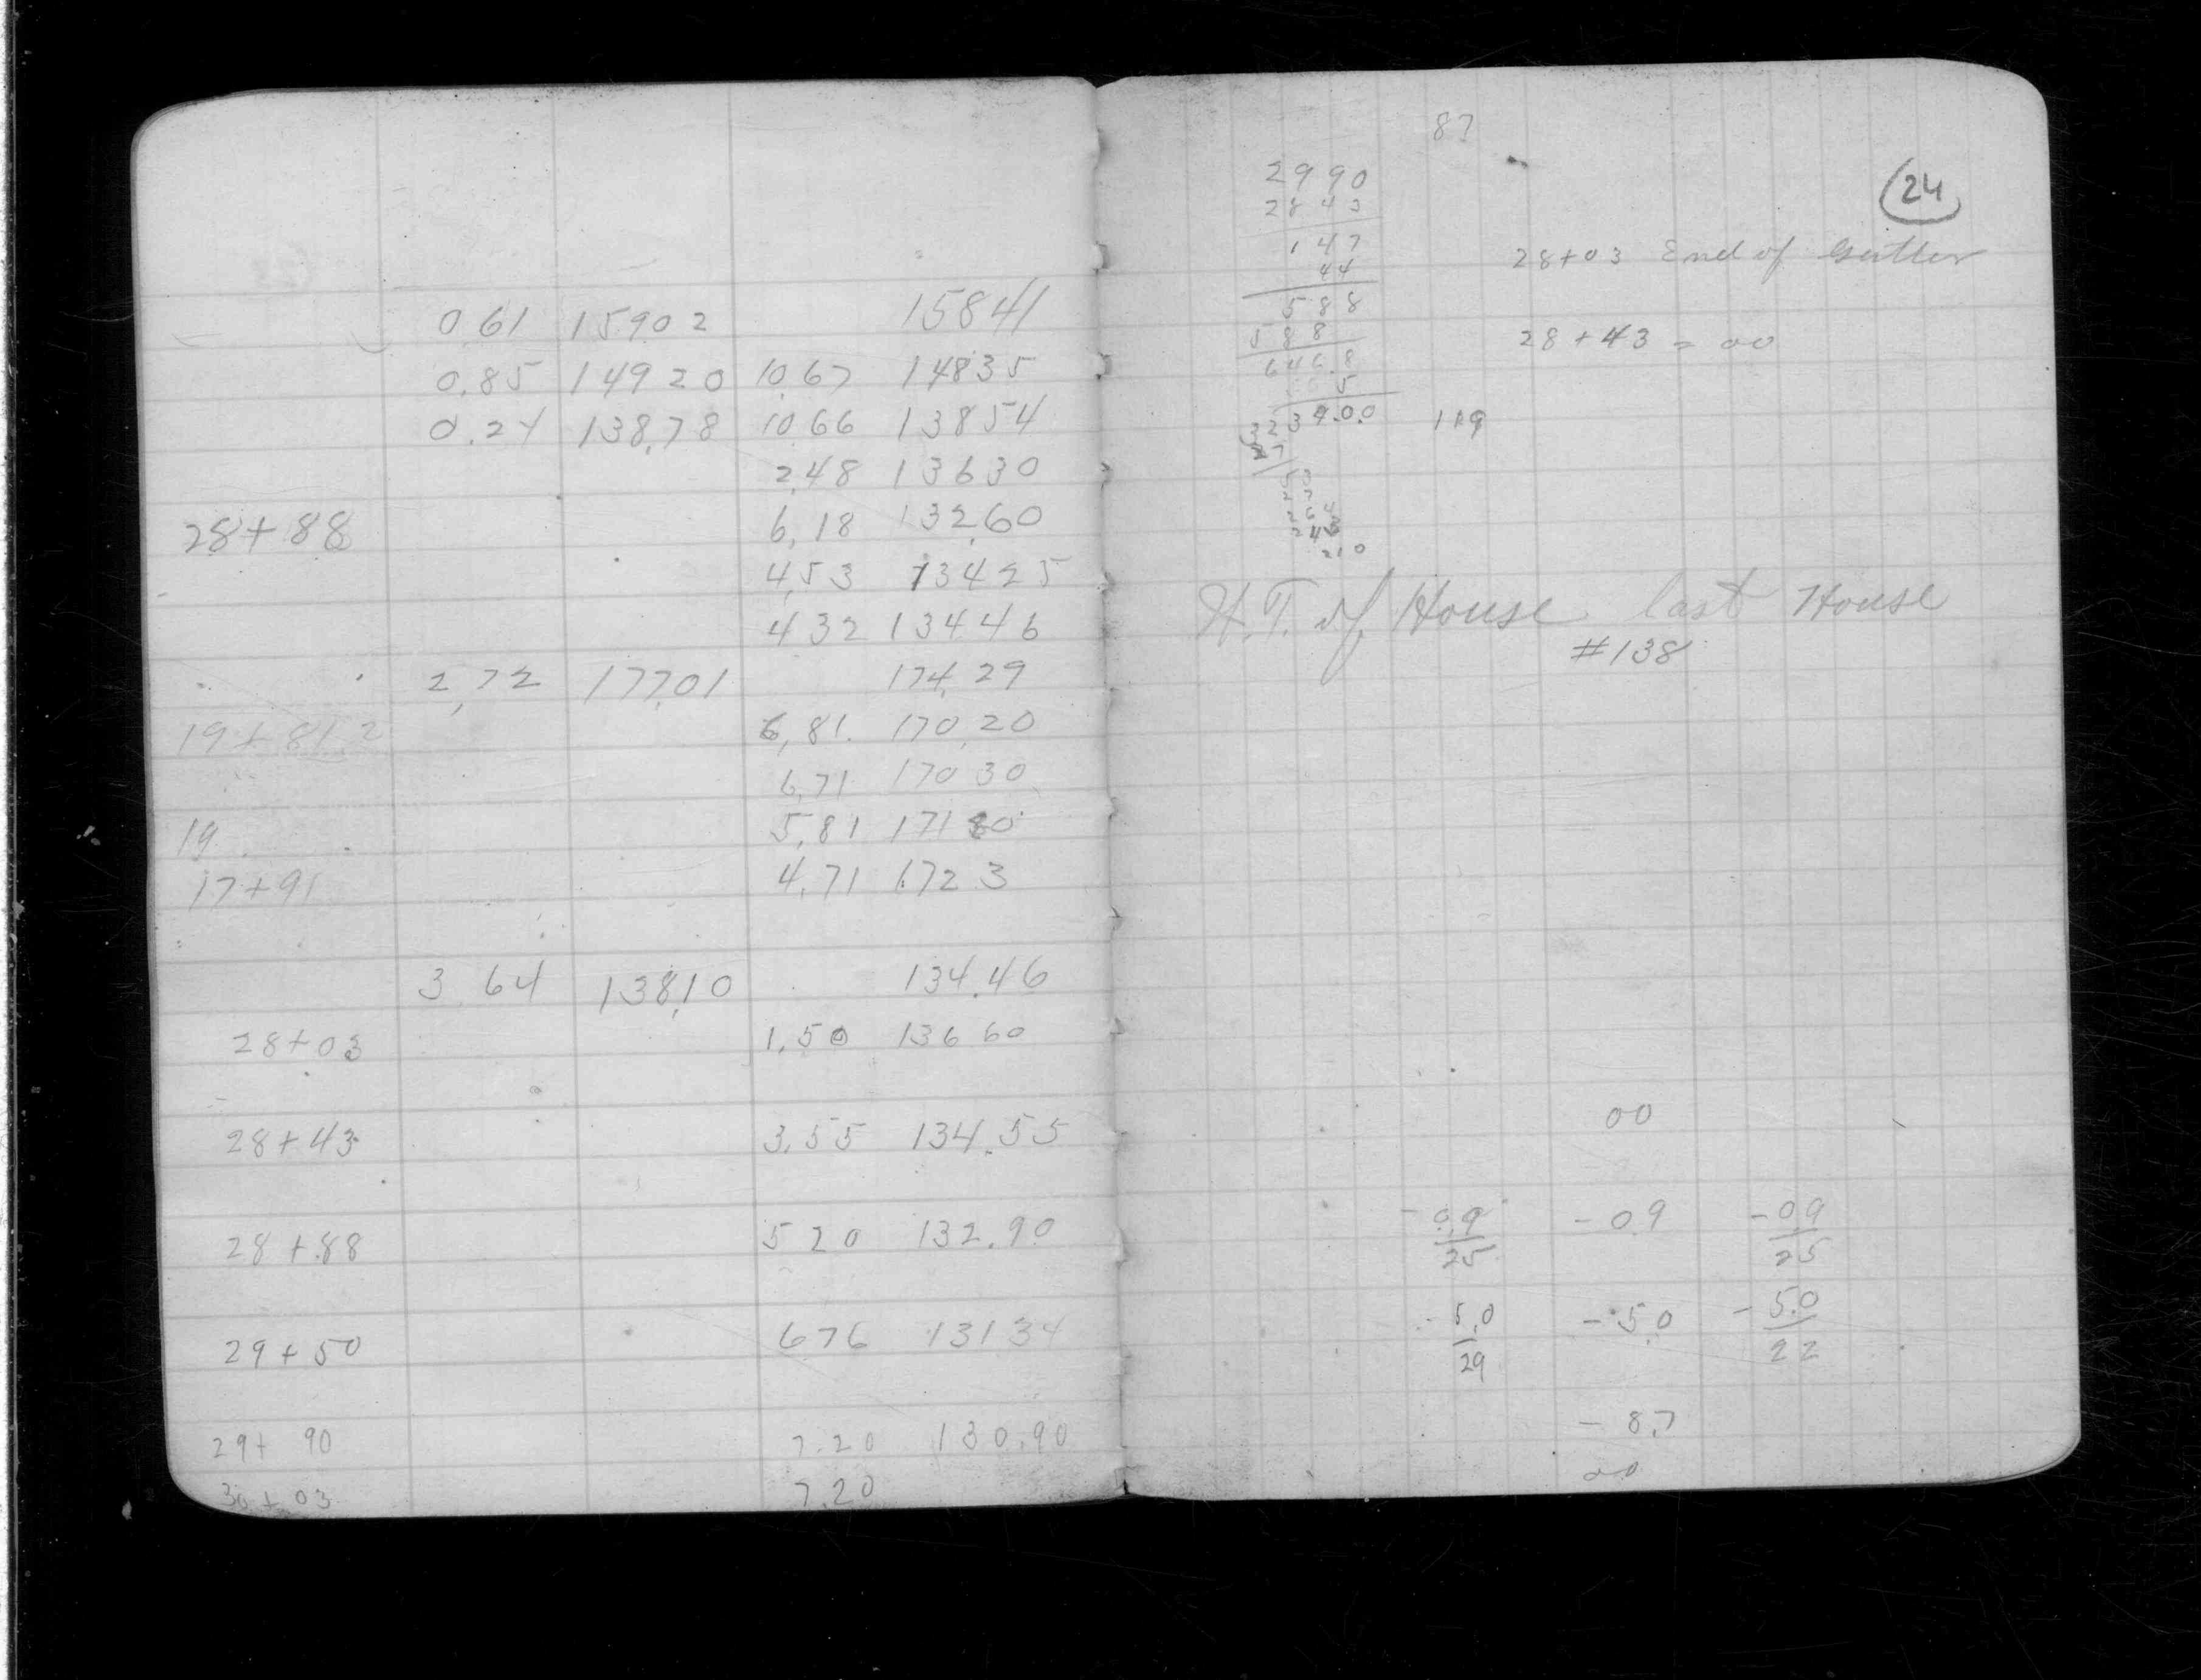 0.61 159.02 158.41
0.85 149.20 10.67 148.35
0.24 138.78 10.66 138.54
2.48 136.30
28+88 6.18 132.60
4.53 134.25
4.32 134.46
2.72 177.01 174.29
19+81.2 6.81 170.20
6.71 170.30
19 5.81 171 80
4.71 172 3
17+91
3.64 138.10 134.46
28+03 1.50 136 60
28+43 3.55 134.55
28+88 5 20 132.90
29+50 6 76 131 34
29+90 7.20 130.90
30+03 7.20
87
24
2990
2843
147
44
588
588
646.8
5
32 3 9.0.0 119
210
28+03 End of Gutter
28+43 = 00
H.T. of House last House
#138
00
-0.9/25 -0.9 -0.9/25
-5.0/29 -5.0 -5.0/22
-8.7
00